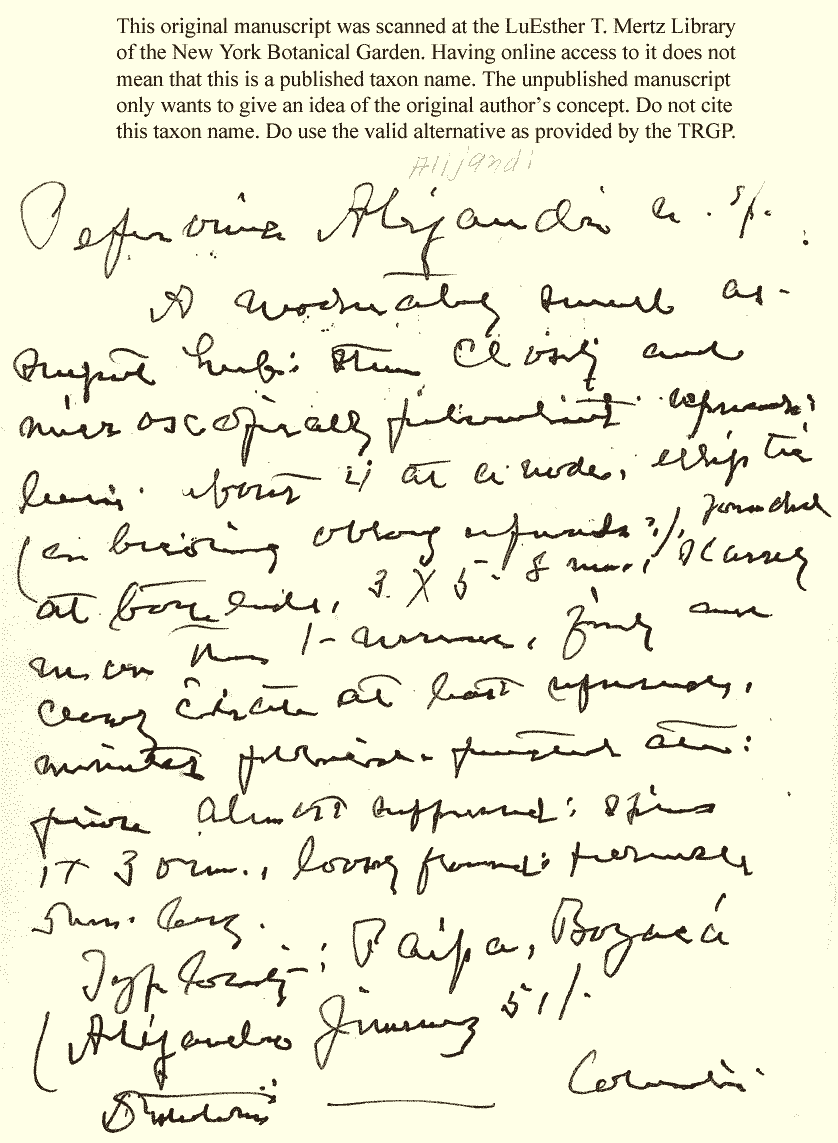 This original manuscript was scanned at the LuEsther T. Mertz Library
of the New York Botanical Garden. Having online access to it does not
mean that this is a published taxon name. The unpublished manuscript
only wants to give an idea of the original author's concept. Do not cite
this taxon name. Do use the valid alternative as provided by the TRGP.
Alijandi
Peperomia Alejandri n. sp.
A moderately small
herb: stem closely and
microscopically
leaves about 4 at a node, elliptic
oblong rounded
at both ends, 3 X 5-8 mm.,
more than 1-nerved, finely and
ciliate at least
minutely
almost suppressed: spikes
1 X 30 mm., loosely flowered: peduncle
5 mm. long.
Type locality: Paipa, Boyacá
(Alejandro Jimenez 51).
Colombia